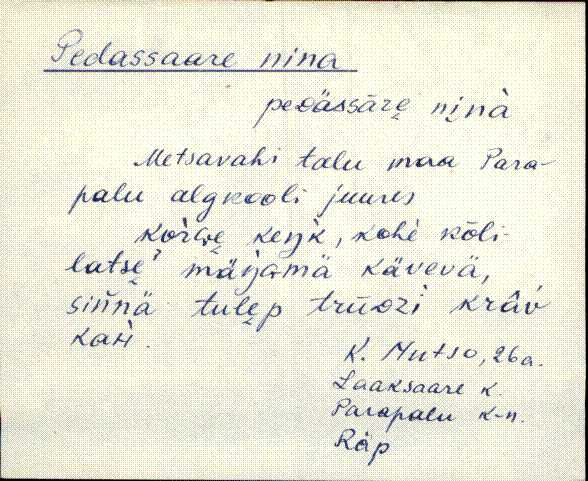 Pedassaare nina
pedässāre̮ ninà
Metsavahi talu maa Para-
palu algkooli juures
kòrge̮ keŋk, kohè kōli-
latse̮ʾ mäŋ̀gmä kävevä,
siňnä tule̮p trūdzi krâv́
kaŕi.
K. Mutso, 26 a.
Laaksaare k.
Parapalu k-n.
Räp